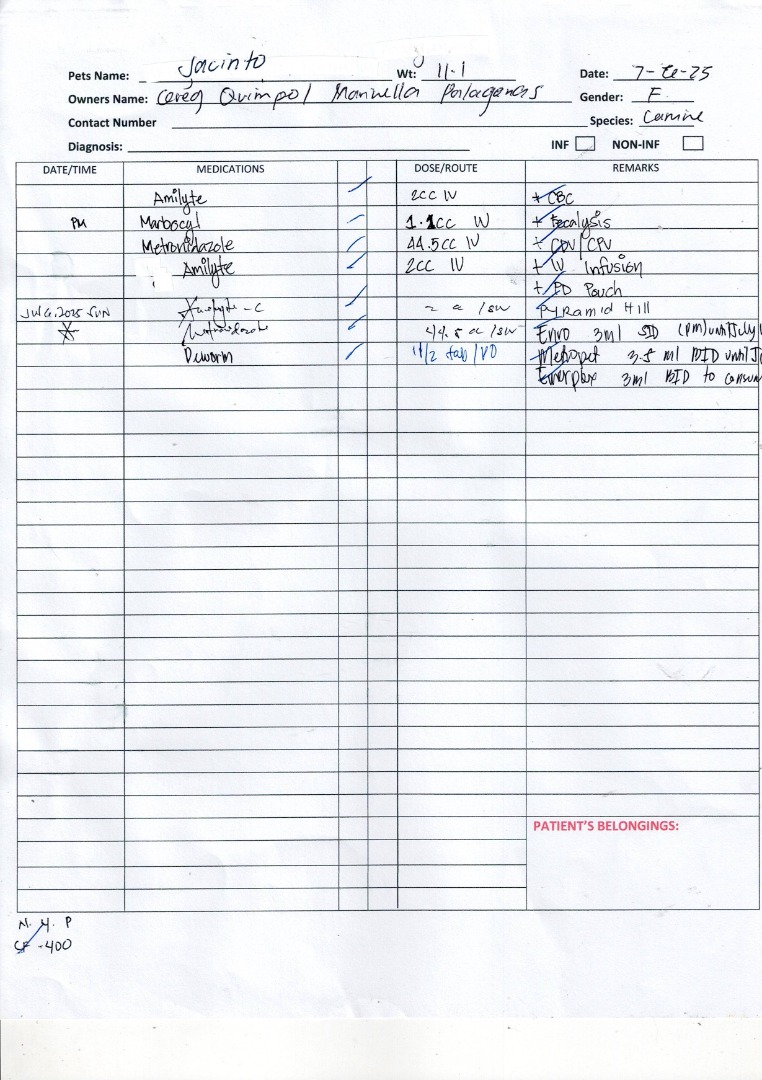 Pets Name: Jacinto Wt: 11.1 Date:
Owners Name: Quimpol Gender: F
Contact Number Species: Canine
Diagnosis: INF NON-INF
DATE/TIME MEDICATIONS DOSE/ROUTE REMARKS
Amilyte 2cc IV + CBC
PM Marbocyl 1.1cc IV + Fecalysis
Metronidazole 44.5cc IV + CDV/CPV
Amilyte 2cc IV + IV Infusion
+ ED Pouch
2025 SUN - C Pyramid Hill
44.5 Enro 3ml SID (pm) until July
Deworm 1 1/2 tab/ Metropet 3.5 ml BID until J
3ml BID to consum
PATIENT'S BELONGINGS:
N. Y. P
CF -400